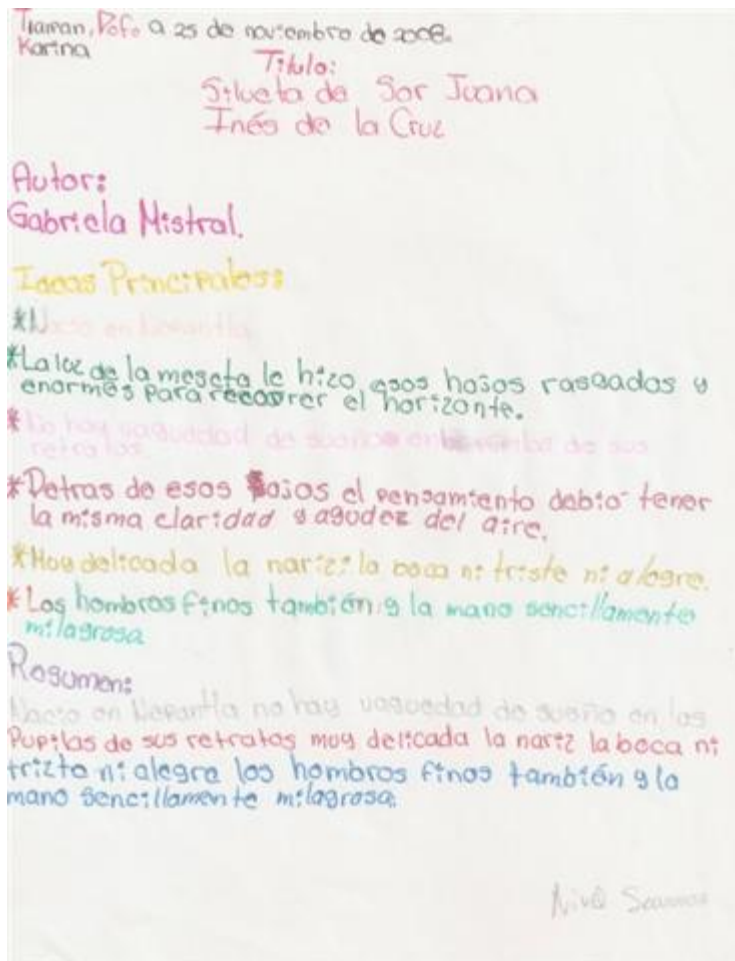 Tlaman, Pofo a 25 de noviembre de 2008.
Karina
Titulo:
Silueta de Sor Juana
Inés de la Cruz
Autor:
Gabriela Mistral.
Ideas Principales:
*Nacio en Nepantla
*La luz de la meseta le hizo esos hojos rasgados y
enormes para recorrer el horizonte.
*No hay vaguedad de sueño en de sus
retratos
*Detras de esos ojos el pensamiento debio tener
la misma claridad y agudez del aire.
*Moy delicada la nariz; la boca ni triste ni alegre.
*Los hombros finos también; y la mano sencillamente
milagrosa
Resumen:
Nacio en Nepantla no hay vaguedad de sueño en las
Pupilas de sus retratos moy delicada la nariz la boca ni
trizte ni alegre los hombros finos también y la
mano sencillamente milagrosa.